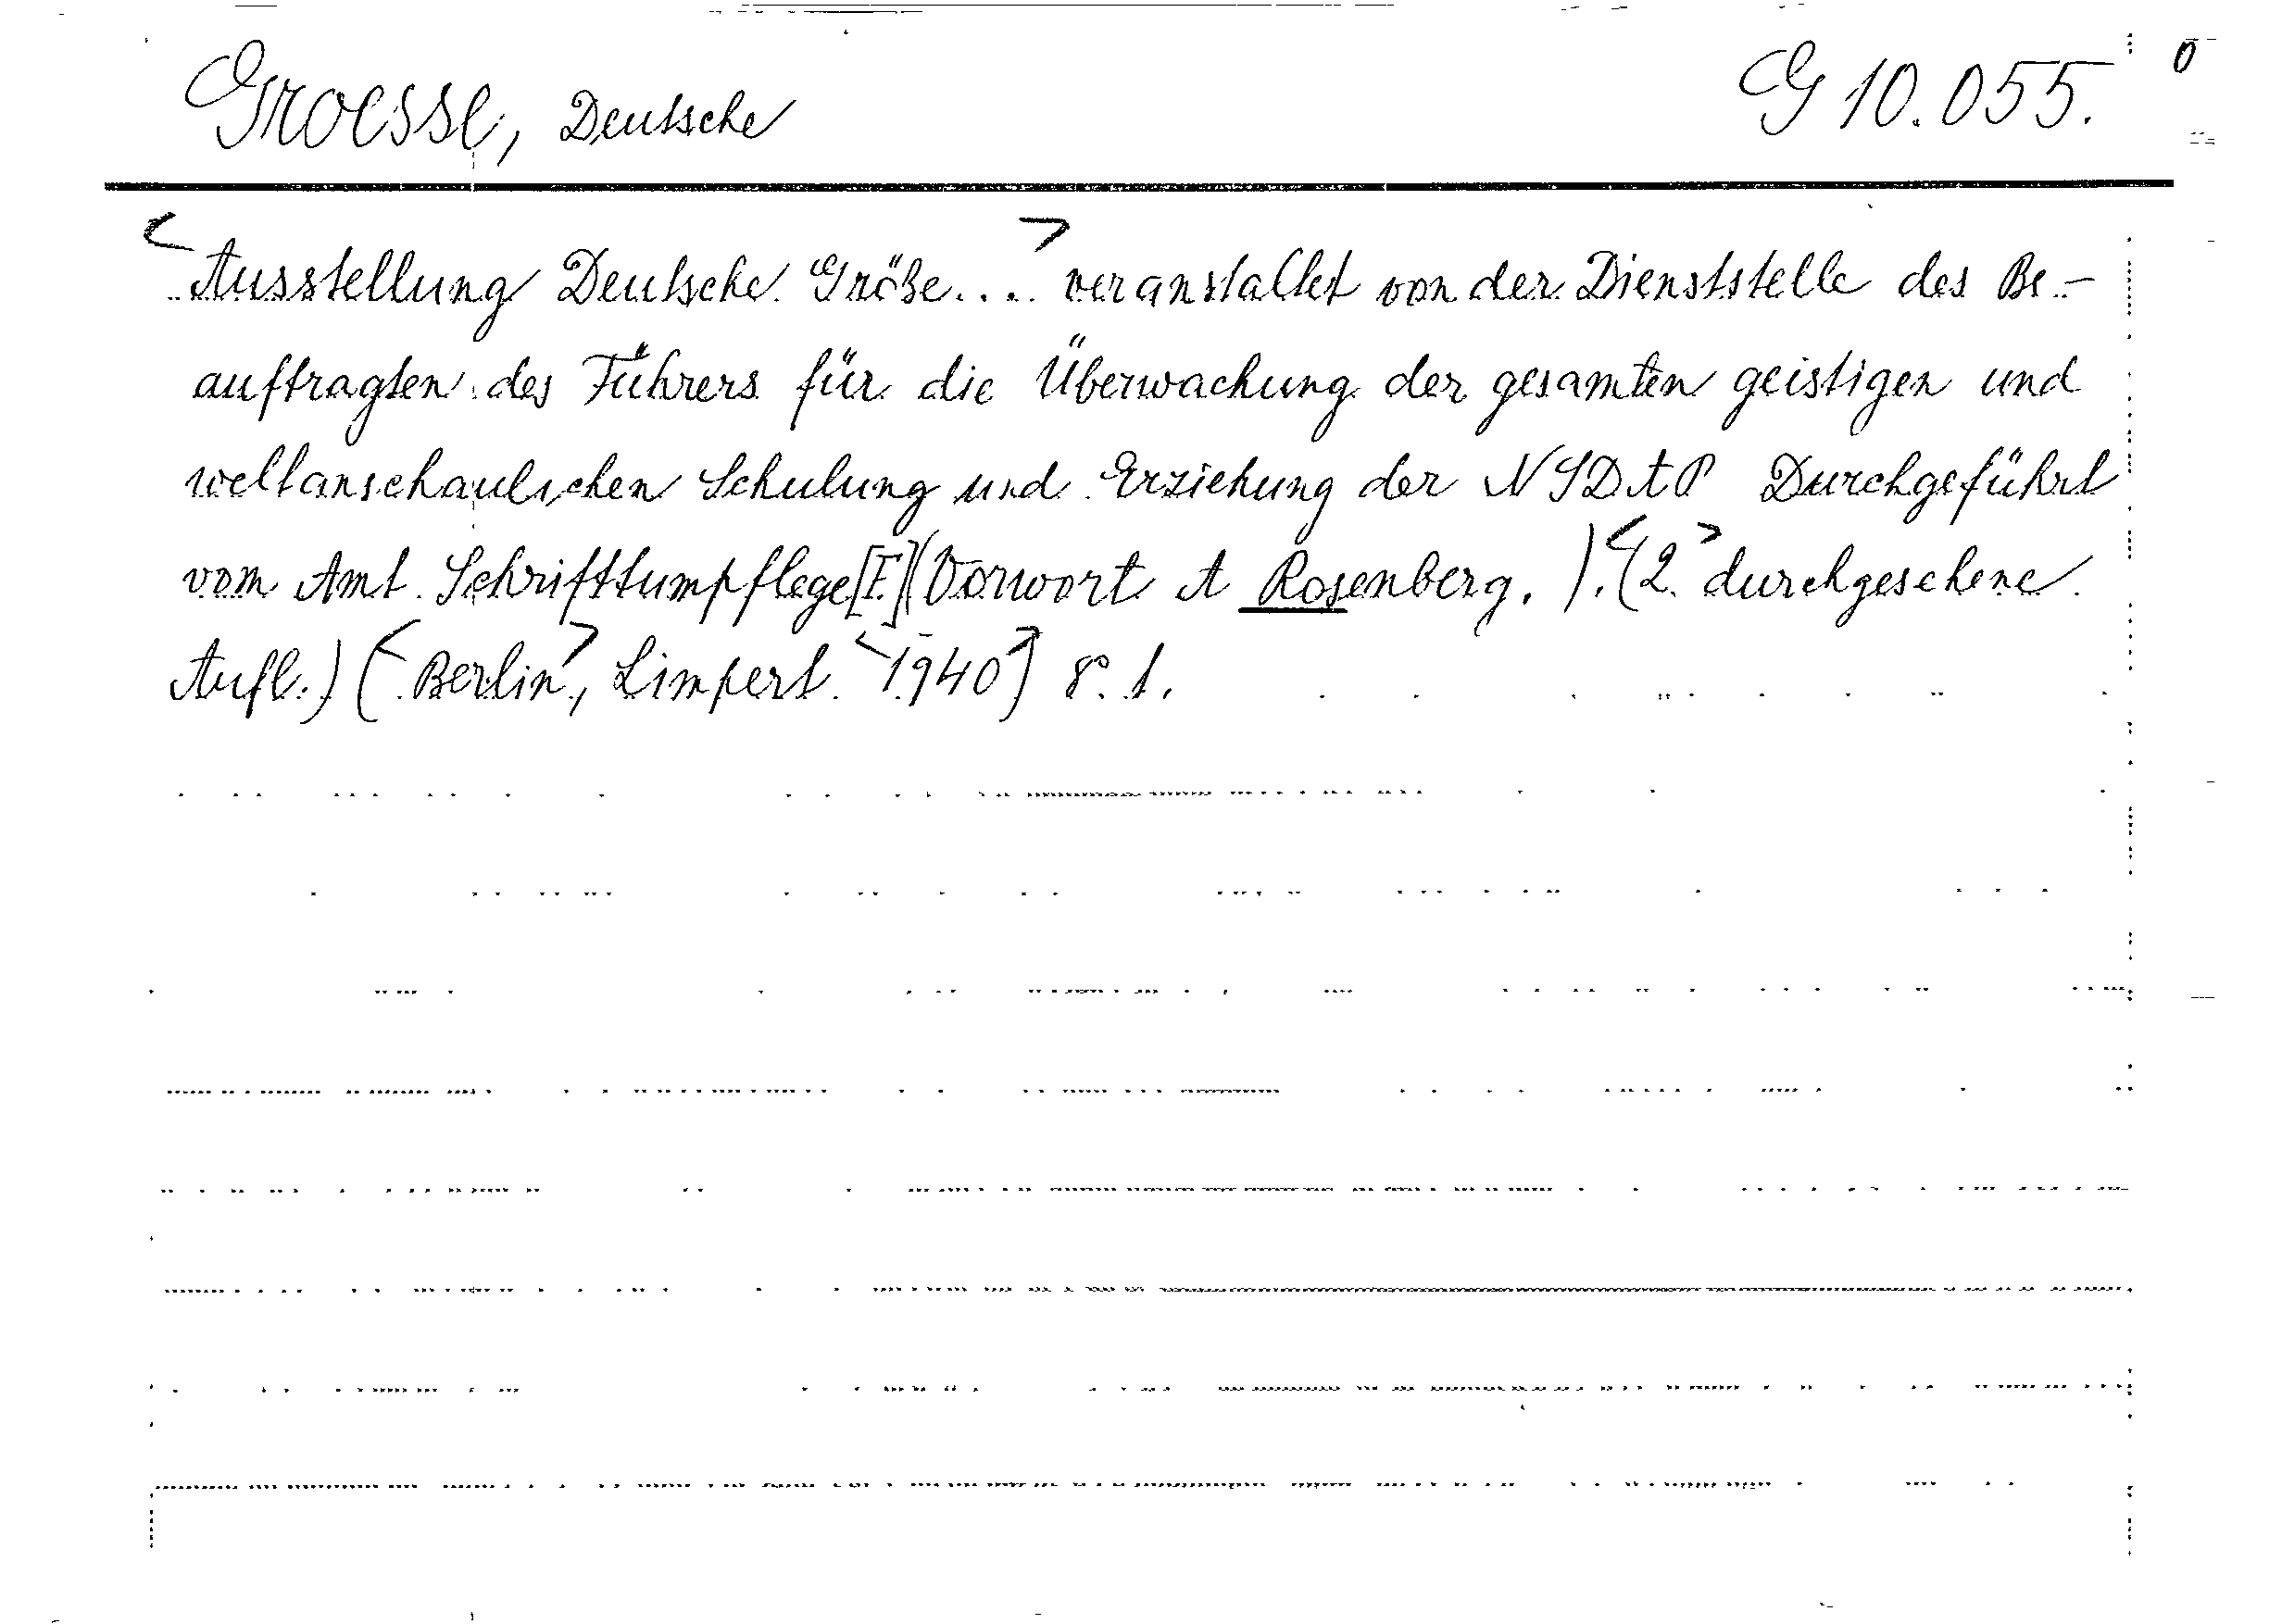 Groesse, Deutsche G 10.055. 0
<Ausstellung Deutsche Größe....> veranstaltet von der Dienststelle des Be-
auftragten des Führers für die Überwachung der gesamten geistigen und
weltanschaulichen Schulung und Erziehung der NSDAP Durchgeführt
vom Amt Schrifttumpflege [F.] (Vorwort A Rosenberg. ). <(2.> durchgesehene
Aufl.) (<Berlin>, Limpert <1940>) 8° 1.